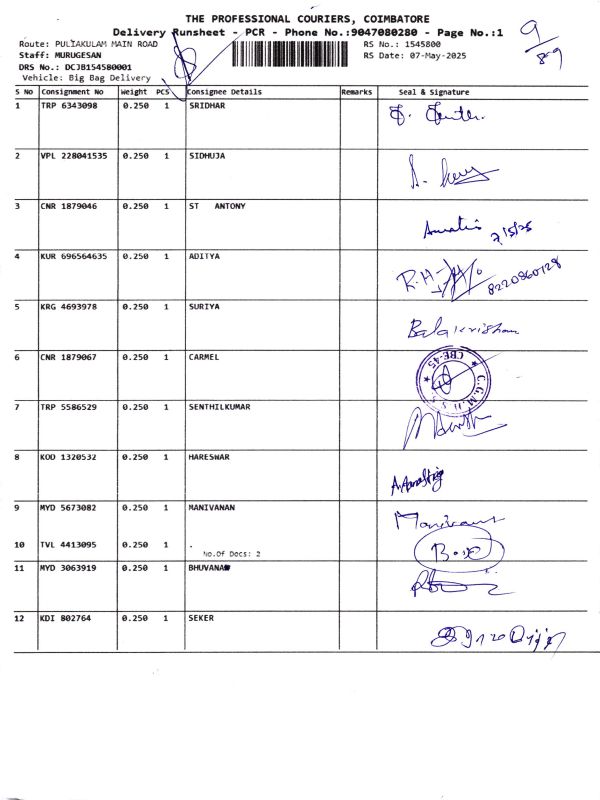 THE PROFESSIONAL COURIERS, COIMBATORE
Delivery Runsheet - PCR - Phone No.:9047080280 - Page No.:1
Route: PULIAKULAM MAIN ROAD
RS No.: 1545800
Staff: MURUGESAN
RS Date: 07-May-2025
DRS No.: DCJB154580001
Vehicle: Big Bag Delivery
9
89
S No Consignment No Weight PCS Consignee Details Remarks Seal & Signature
1 TRP 6343098 0.250 1 SRIDHAR
2 VPL 228041535 0.250 1 SIDHUJA
3 CNR 1879046 0.250 1 ST ANTONY
7/5/25
4 KUR 696564635 0.250 1 ADITYA
R.H
5 KRG 4693978 0.250 1 SURIYA
Balakrishnan
6 CNR 1879067 0.250 1 CARMEL
CBE-45
7 TRP 5586529 0.250 1 SENTHILKUMAR
8 KOD 1320532 0.250 1 HARESWAR
9 MYD 5673082 0.250 1 MANIVANAN
10 TVL 4413095 0.250 1 .
No.Of Docs: 2
11 MYD 3063919 0.250 1 BHUVANA
12 KDI 802764 0.250 1 SEKER